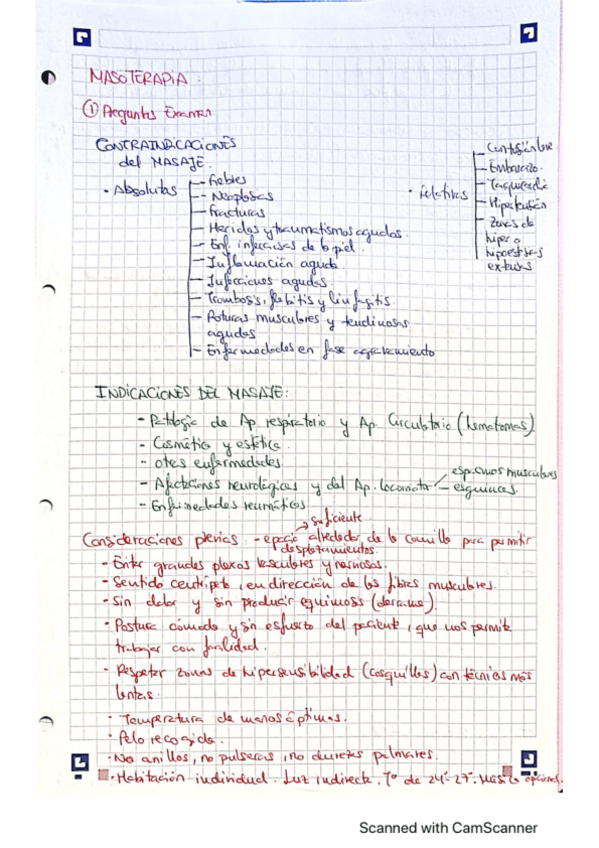 MASOTERAPIA:
① Preguntas Examen
CONTRAINDICACIONES
del MASAJE.
• Absolutas
- Fiebres
- Neoplasias
- Fracturas
- Heridas y traumatismos agudos.
- Enf. infecciosas de la piel.
- Inflamación aguda
- Infecciones agudas.
- Trombosis, flebitis y linfagitis.
- Roturas musculares y tendinosas
agudas
- Enfermedades en fase agotamiento
• Relativas
- Embarazo.
- Taquicardia
- Hipertensión
- Zonas de
hiper o
hipoestesias
extensas
INDICACIONES DEL MASAJE:
- Patología de Ap respiratorio y Ap. Circulatorio (hematomas)
- Cosmética y estética.
- otras enfermedades.
- Afectaciones neurológicas y del Ap. locomotor - espasmos musculares
- esguinces.
- Enfermedades reumáticas
Consideraciones previas - espacio suficiente alrededor de la camilla para permitir
desplazamientos.
- Evitar grandes plexos vasculares y nerviosos.
- Sentido centrípeto, en dirección de las fibras musculares.
- Sin dolor y sin producir equimosis (derrame).
- Postura cómoda y sin esfuerzo del paciente, que nos permita
trabajar con facilidad.
- Respetar zonas de hipersensibilidad (cosquillas) con técnicas más
lentas.
- Temperatura de manos óptimas.
- Pelo recogido.
- No anillos, no pulseras, no durezas palmares.
- Habitación individual. Luz indirecta, Tº de 24º-27º. Música opcional.
Scanned with CamScanner